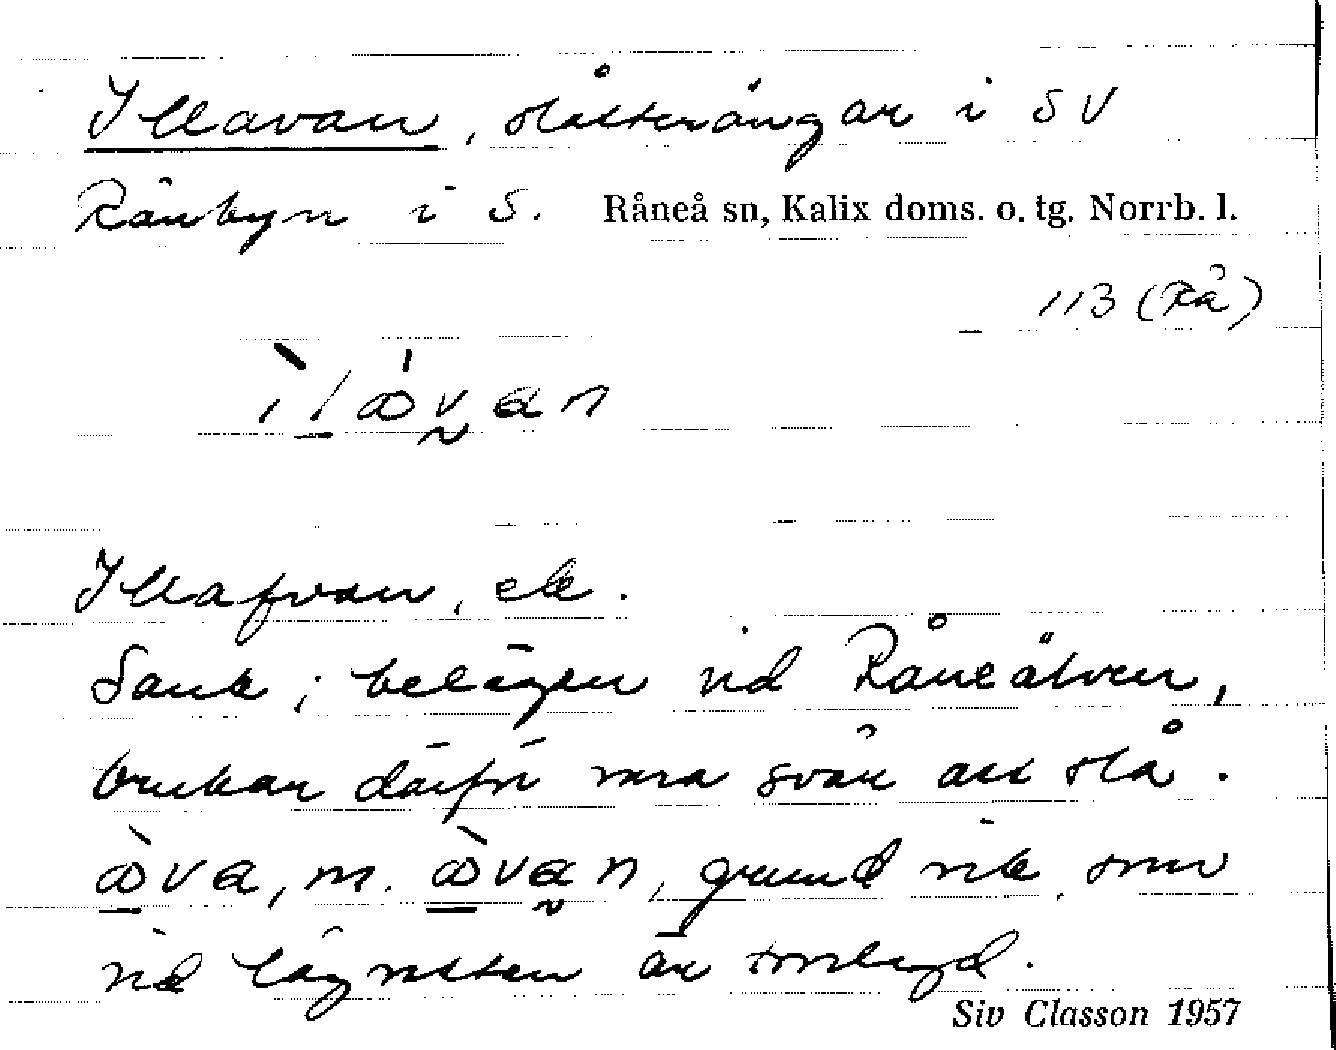 Illavan, slåtterängar i SV
Rånbyn i S. Råneå sn, Kalix doms. o. tg. Norrb. l.
113 (Rå)
Illafvan, ek.
Sank; belägen vid Råneälven,
brukar därför vara svår att slå.
va, m. van, grund vik, som
vid lågvatten är torrlagd.
Siv Classon 1957